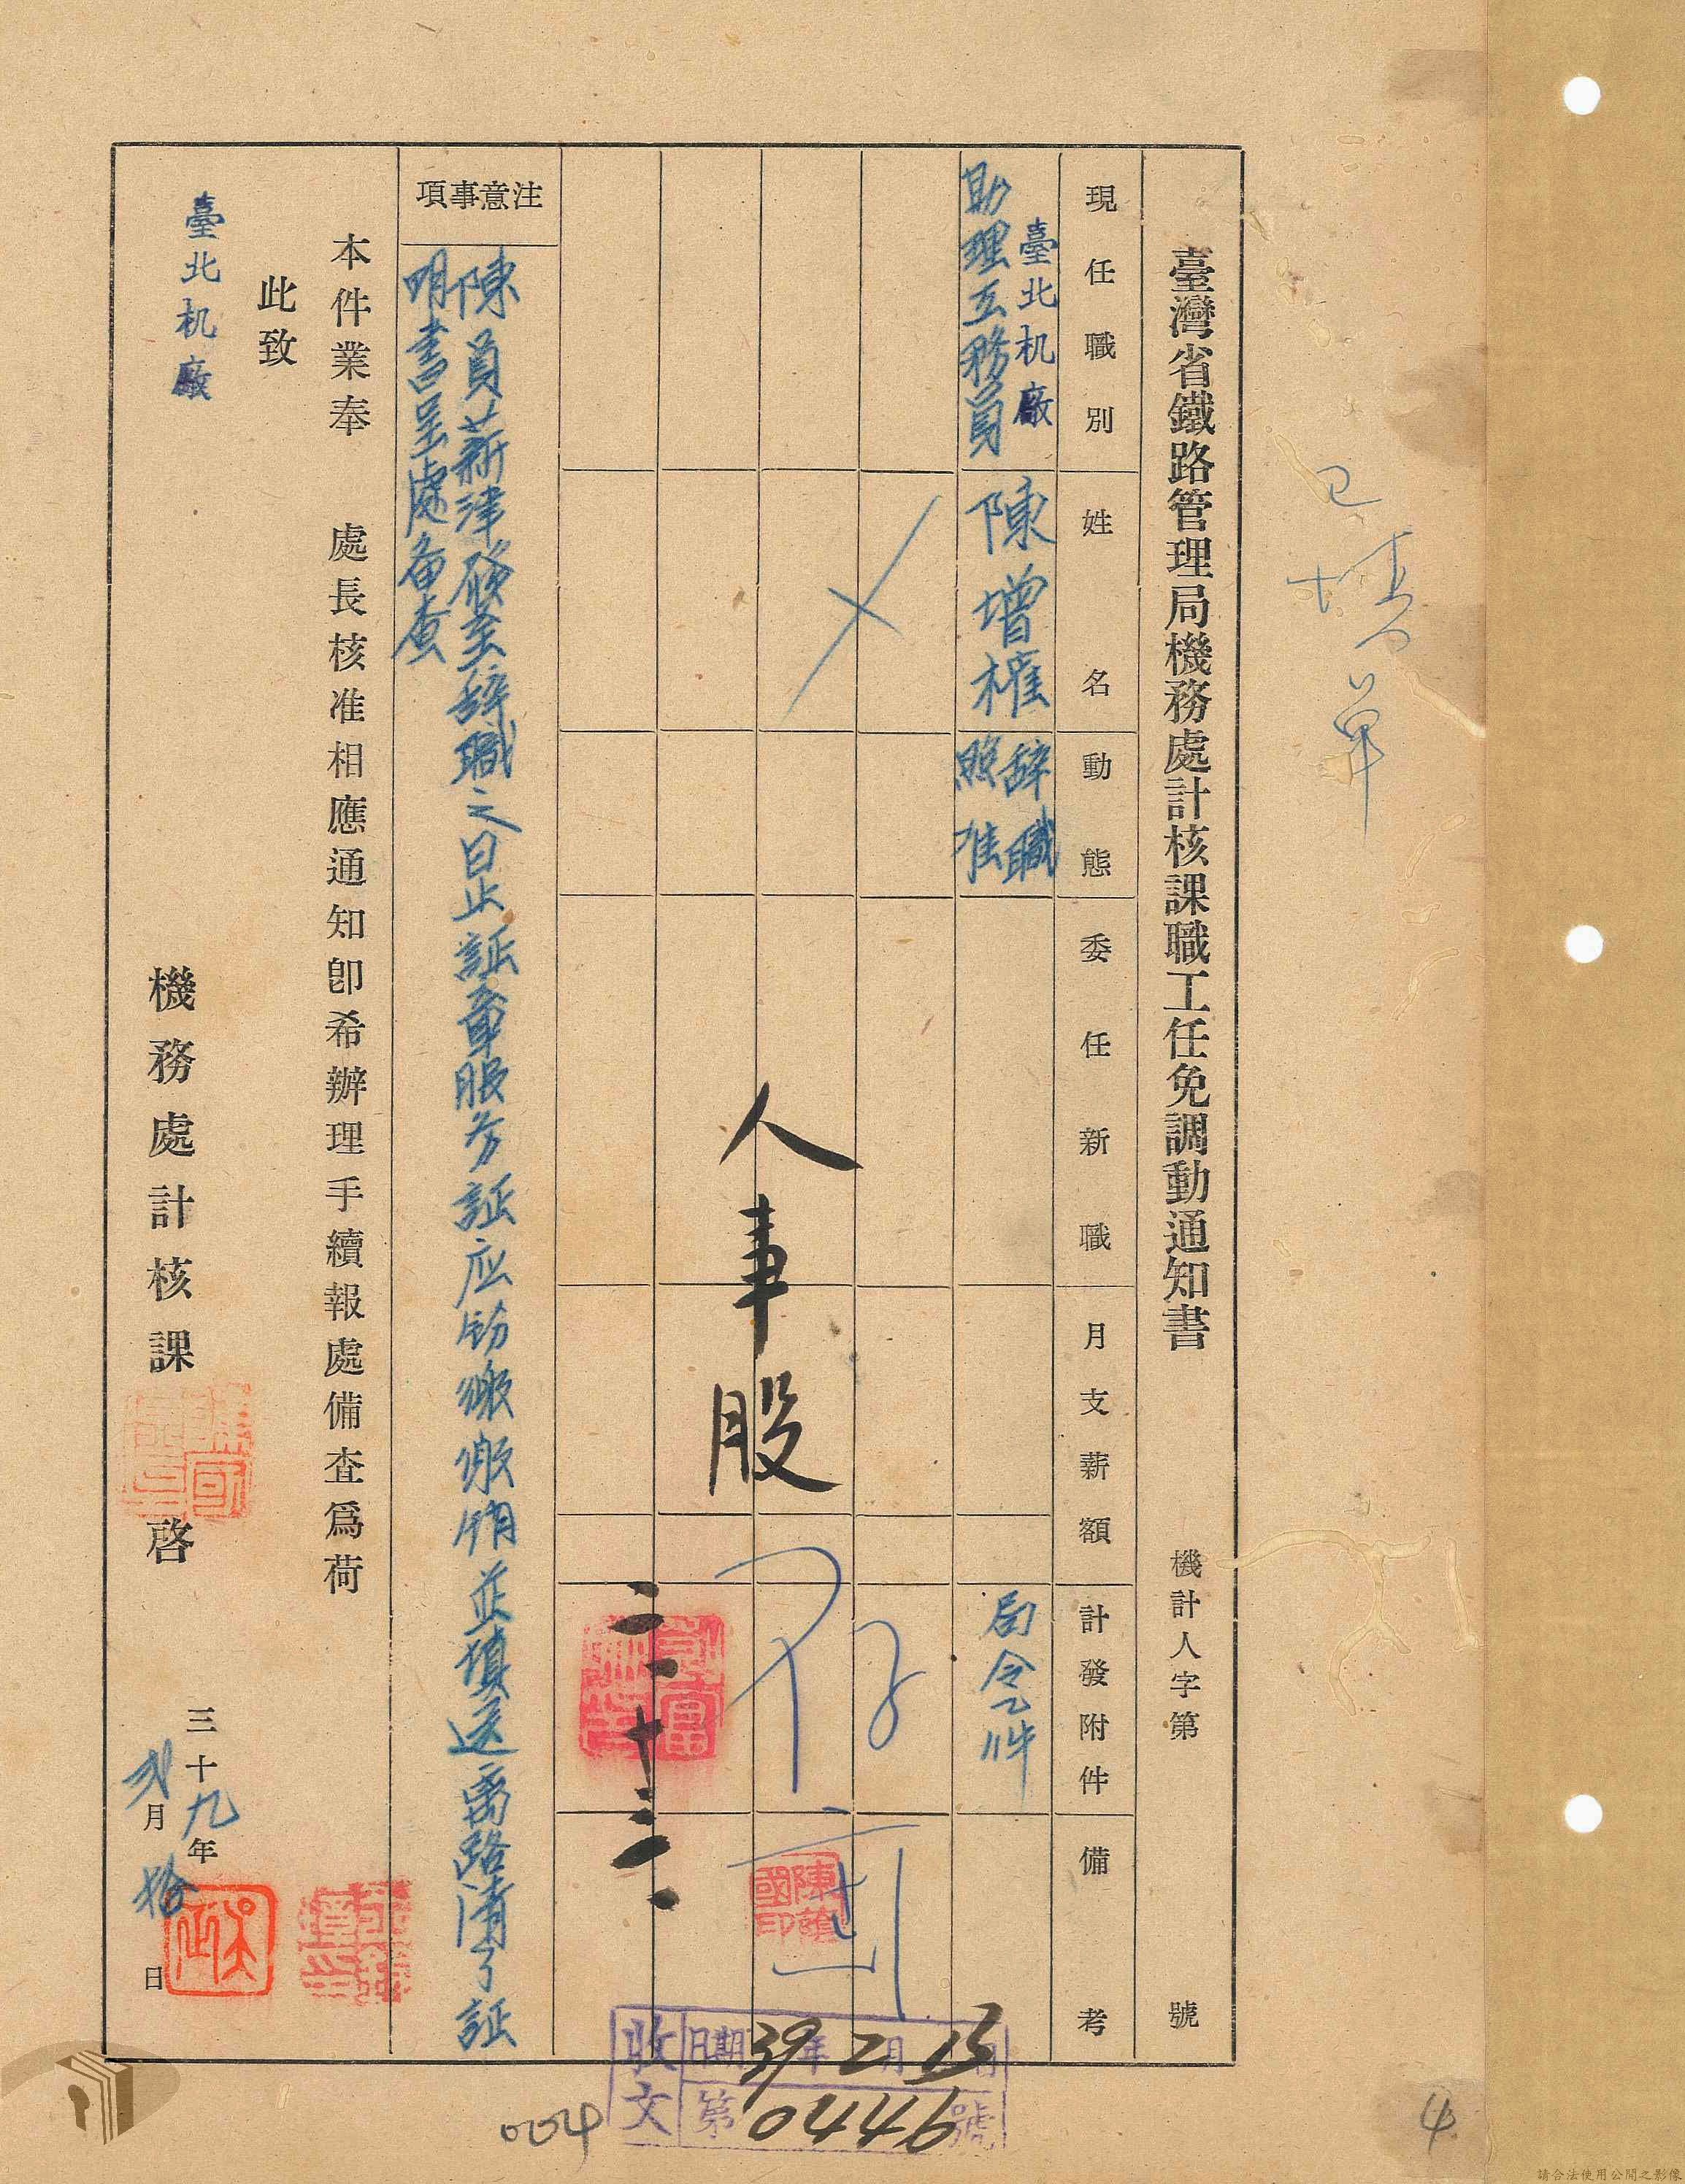 已填單
臺灣省鐵路管理局機務處計核課職工任免調動通知書
機計人字第　　號
現任職別
姓名
動態
委任新職
月支薪額
計發附件
備考
臺北机廠
助理工務員
陳增權
辞職
照准
局令乙件
人事股
二、十三、
陳蔭國印
注意事項
陳員薪津發至辞職之日止証章服务証应飭繳繳銷並填送离路清了証
明書呈處备查
本件業奉　處長核准相應通知卽希辦理手續報處備查爲荷
此致
臺北机廠
機務處計核課　啓
三十九年
弍月拾日
收文
日期39年2月13日
第0446號
004
4
請合法使用公開之影像